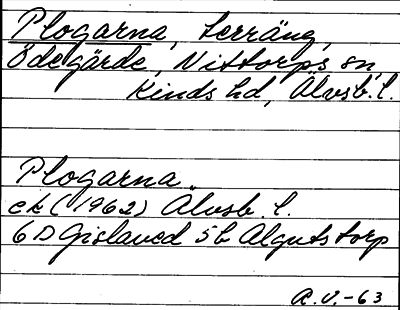 Plogarna, terräng,
Ödegärde, Nittorps sn,
Kinds hd, Älvsb. l.
Plogarna
ek (1962) Älvsb. l.
6D Gislaved 5b Algutstorp
R.V.-63